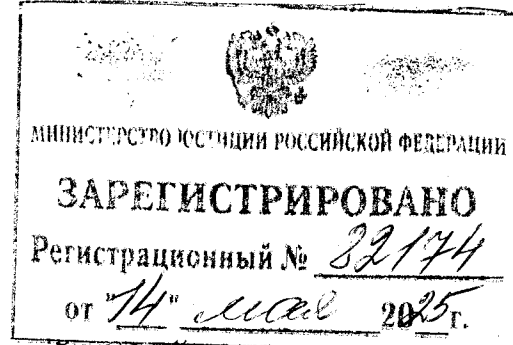 МИНИСТЕРСТВО ЮСТИЦИИ РОССИЙСКОЙ ФЕДЕРАЦИИ
ЗАРЕГИСТРИРОВАНО
Регистрационный № 82174
от "14" мая 2025г.